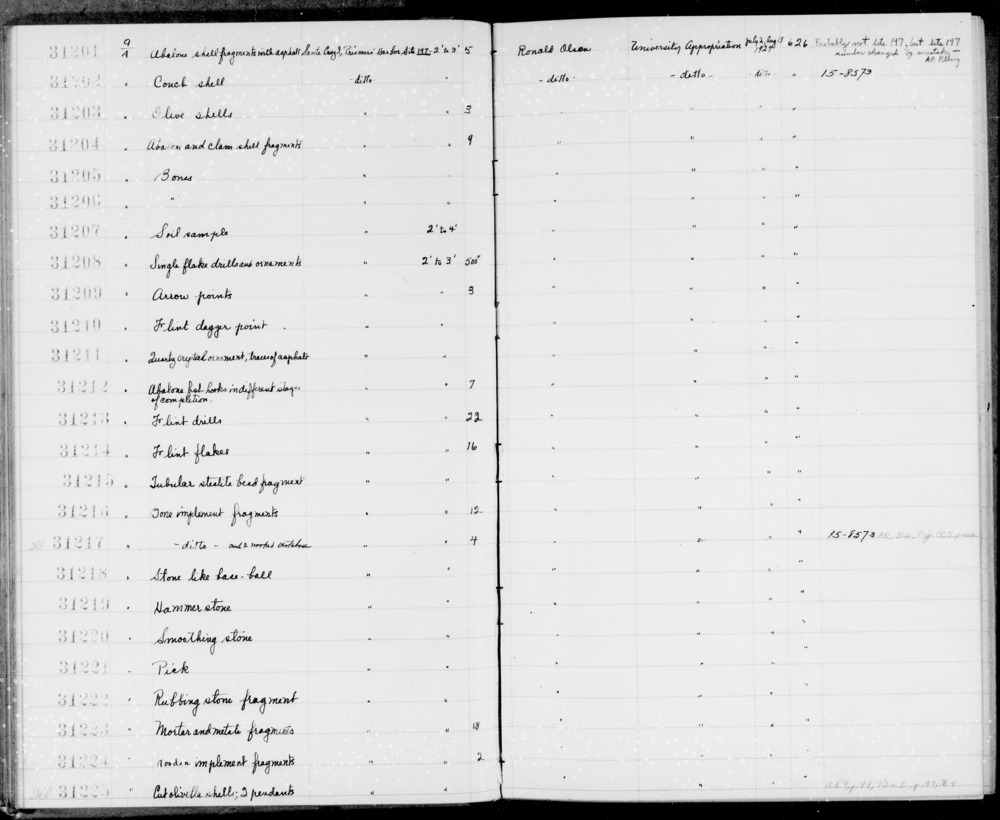 31201 9/1 Abalone shell fragments with asphalt Santa Cruz I, Prisoners Harbor Site 197- 2' to 3' 5 Ronald Olson University Appropriation July 2, Aug 13 1927 626 Probably not site 197, but site 147
number changed by mistake —
31202 " Conch shell - ditto - ditto - - ditto - ditto 15-8573
31203 " Olive shells " " 3 " " "
31204 " Abalone and clam shell fragments " " 9 " " " "
31205 " Bones " " " " " "
31206 " " " " " " " "
31207 " Soil sample " 2' to 4' " " " "
31208 " Single flake drills and ornaments " 2' to 3' 500 " " " "
31209 " Arrow points " " 3 " " " "
31210 " Flint dagger point " " " " " "
31211 " Quartz crystal ornament, traces of asphalt " " " " " "
31212 " Abalone fish-hooks in different stages " " 7 " " " "
of completion.
31213 " Flint drills " " 22 " " " "
31214 " Flint flakes " " 16 " " " "
31215 " Tubular steatite bead fragment " " " " "
31216 " Bone implement fragments " " 12 " " " "
31217 " - ditto - and 2 worked " " 4 " " " " 15-8573
31218 " Stone like base-ball " " " " " "
31219 " Hammer stone " " " " "
31220 " Smoothing stone " " " " "
31221 " Pick " " " " "
31222 " Rubbing stone fragment " " " " " "
31223 " Mortar and metate fragments " " 18 " " " "
31224 " Wooden implement fragments " " 2 " " "
31225 " Cut olivella shells; 2 pendants " " " " "